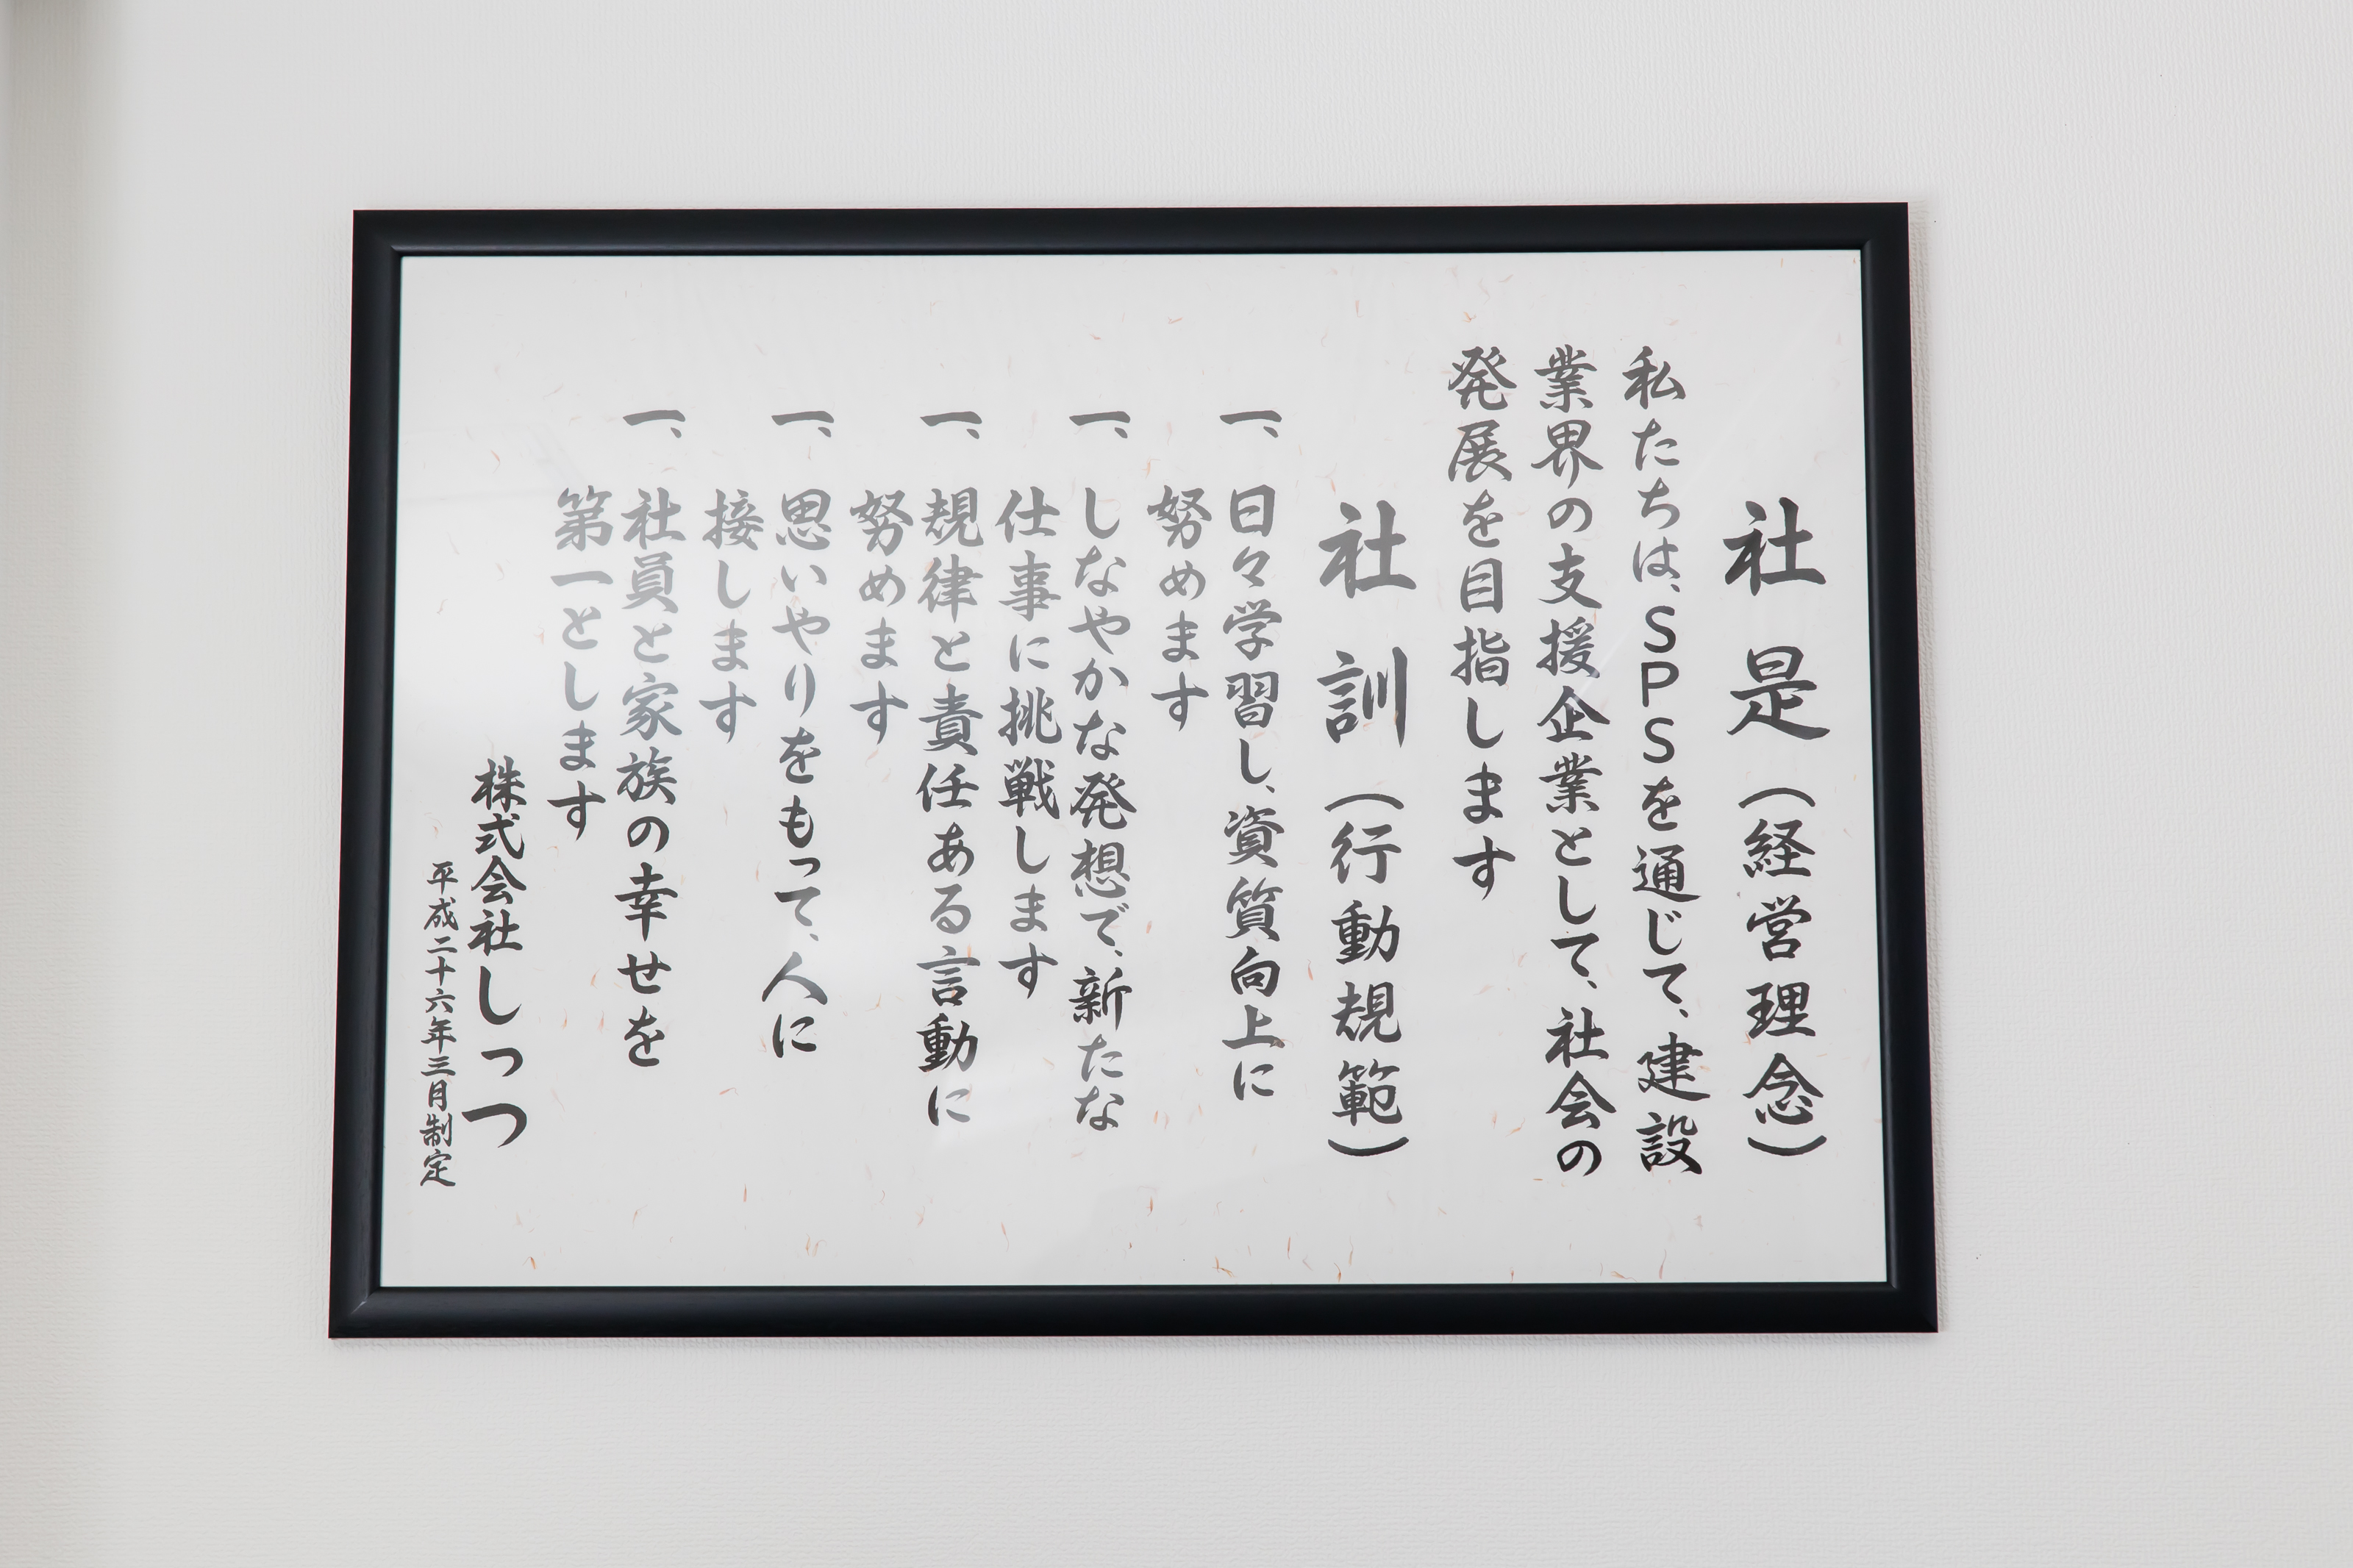 社是（経営理念）
私たちは、SPSを通じて、建設
業界の支援企業として、社会の
発展を目指します
社訓（行動規範）
一、日々学習し、資質向上に
努めます
一、しなやかな発想で、新たな
仕事に挑戦します
一、規律と責任ある言動に
努めます
一、思いやりをもって、人に
接します
一、社員と家族の幸せを
第一とします
株式会社しっつ
平成二十六年三月制定